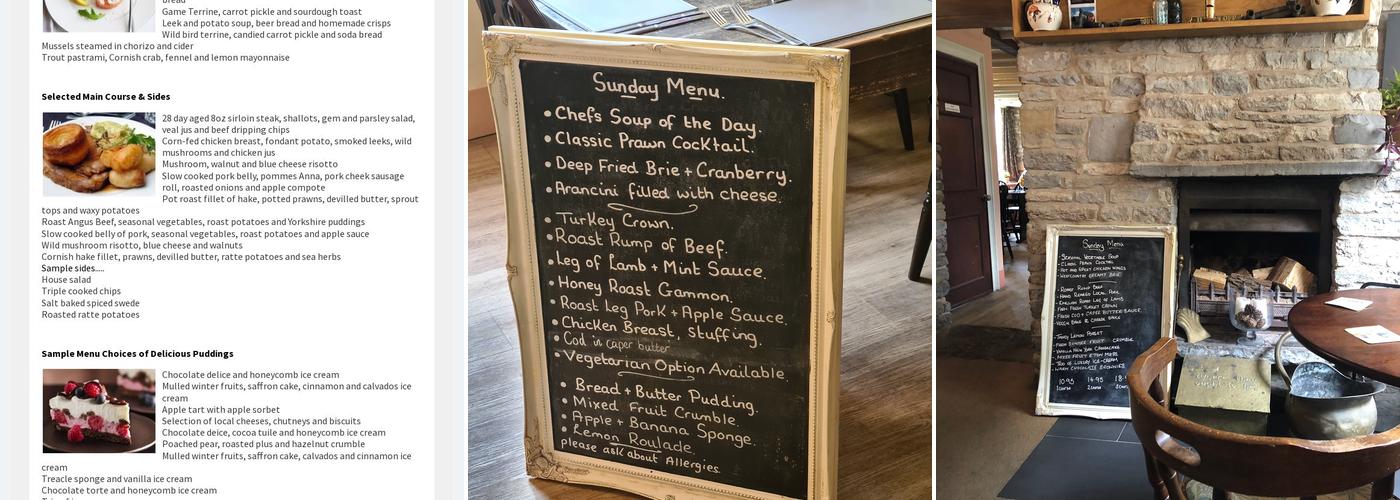 bread
Game Terrine, carrot pickle and sourdough toast
Leek and potato soup, beer bread and homemade crisps
Wild bird terrine, candied carrot pickle and soda bread
Mussels steamed in chorizo and cider
Trout pastrami, Cornish crab, fennel and lemon mayonnaise
Selected Main Course & Sides
28 day aged 8oz sirloin steak, shallots, gem and parsley salad,
veal jus and beef dripping chips
Corn-fed chicken breast, fondant potato, smoked leeks, wild
mushrooms and chicken jus
Mushroom, walnut and blue cheese risotto
Slow cooked pork belly, pommes Anna, pork cheek sausage
roll, roasted onions and apple compote
Pot roast fillet of hake, potted prawns, devilled butter, sprout
tops and waxy potatoes
Roast Angus Beef, seasonal vegetables, roast potatoes and Yorkshire puddings
Slow cooked belly of pork, seasonal vegetables, roast potatoes and apple sauce
Wild mushroom risotto, blue cheese and walnuts
Cornish hake fillet, prawns, devilled butter, ratte potatoes and sea herbs
Sample sides.....
House salad
Triple cooked chips
Salt baked spiced swede
Roasted ratte potatoes
Sample Menu Choices of Delicious Puddings
Chocolate delice and honeycomb ice cream
Mulled winter fruits, saffron cake, cinnamon and calvados ice
cream
Apple tart with apple sorbet
Selection of local cheeses, chutneys and biscuits
Chocolate deice, cocoa tuile and honeycomb ice cream
Poached pear, roasted plus and hazelnut crumble
Mulled winter fruits, saffron cake, calvados and cinnamon ice
cream
Treacle sponge and vanilla ice cream
Chocolate torte and honeycomb ice cream
Sunday Menu.
• Chefs Soup of the Day.
• Classic Prawn Cocktail.
• Deep Fried Brie + Cranberry.
• Arancini filled with cheese.
• Turkey Crown.
• Roast Rump of Beef.
• Leg of Lamb + Mint Sauce.
• Honey Roast Gammon.
• Roast Leg Pork + Apple Sauce.
• Chicken Breast, Stuffing.
• Cod in caper butter
• Vegetarian Option Available.
• Bread + Butter Pudding.
• Mixed Fruit Crumble.
• Apple + Banana Sponge.
• Lemon Roulade.
please ask about Allergies.
Sunday Menu
- Seasonal Vegetable Soup
- Classic Prawn Cocktail
- Hot and Spicy Chicken Wings
- Westcountry Creamy Brie
- Roast Rump Beef
- Hand Reared Local Pork
- English Roast Leg of Lamb
- Farm Fresh Turkey Crown
- Fresh Cod + Caper Butter Sauce
- Tangy Lemon Posset
- Farm Summer Fruit Crumble
- Vanilla New York Cheesecake
- Mixed Fruit Eton Mess
- Trio of Luxury Ice-Cream
- Warm Chocolate Brownies
10.95 14.95 18.
1 course 2 course 3